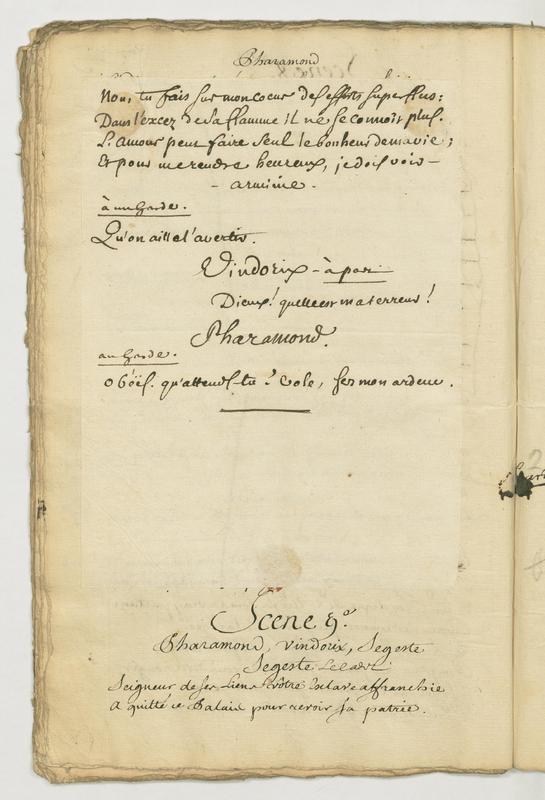 Pharamond
Non, tu fais sur mon coeur des efforts superflus:
Dans l'excez de sa flamme il ne se connoit plus.
L'amour peut faire seul le bonheur de ma vie;
Et pour me rendre heureux, je dois voir
- arminie.
à un Garde.
Qu'on aille l'avertir.
Vindorix - à part
Dieux! quelle est ma terreur!
Pharamond.
au Garde.
obéïs. qu'attends-tu? vole, sers mon ardeur.
Scene 9e
Pharamond, Vindorix, Segeste
Segeste
Seigneur de ses liens vôtre esclave affranchie
A quitté ce Palais pour revoir sa patrie.